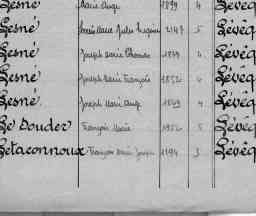 Lesné Marie Ange 1899 4 Lévêq
Lesné Louis Marie Jules Eugène 2147 5 Lévêq
Lesné Joseph Marie 1849 4 Lévêq
Lesné Joseph Marie François 1852 4 Lévêq
Lesné Joseph Marie Ange 1849 4 Lévêq
Le Douder François Marie 5 Lévêq
Letaconnoux François Marie Joseph 1194 3 Lévêq